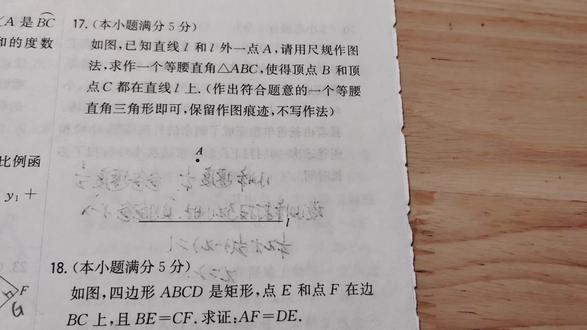 (A 是 BC
和的度数
17.(本小题满分 5 分)
如图,已知直线 l 和 l 外一点 A,请用尺规作图
法,求作一个等腰直角△ABC,使得顶点 B 和顶
点 C 都在直线 l 上.(作出符合题意的一个等腰
直角三角形即可,保留作图痕迹,不写作法)
比例函
y₁ +
A
l
18.(本小题满分 5 分)
如图,四边形 ABCD 是矩形,点 E 和点 F 在边
BC 上,且 BE=CF.求证:AF=DE.
F
G